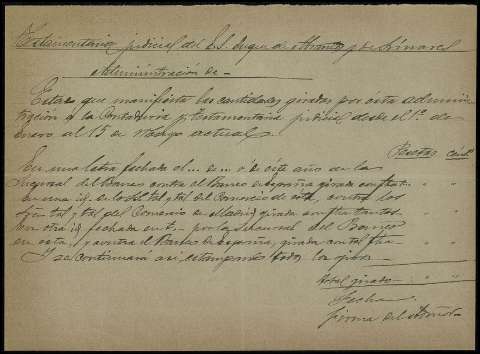 Testamentaria judicial del E.S. Duque de Abrantes y de Linares
Administración de —
Estado que manifiesta las cantidades giradas por esta adminis-
tración a la Contaduría y testamentaria judicial desde el 1º de
enero al 15 de Mayo actual.
Pesetas Cént.
En una letra fechada el ... de ... de este año de la
Sucursal del Banco contra el Banco de España girada con fecha " "
En una id. de los Sres. tal y tal del Comercio de esta, contra los
Sres. tal y tal del Comercio de Madrid girada con fha tantos " "
En otra id. fechada en t... por la sucursal del Banco
en esta, y contra el Banco de España, girada con tal fha " "
Y se continuará así, estampando todos los giros
Total girado " "
Fecha
Firma del Admor.